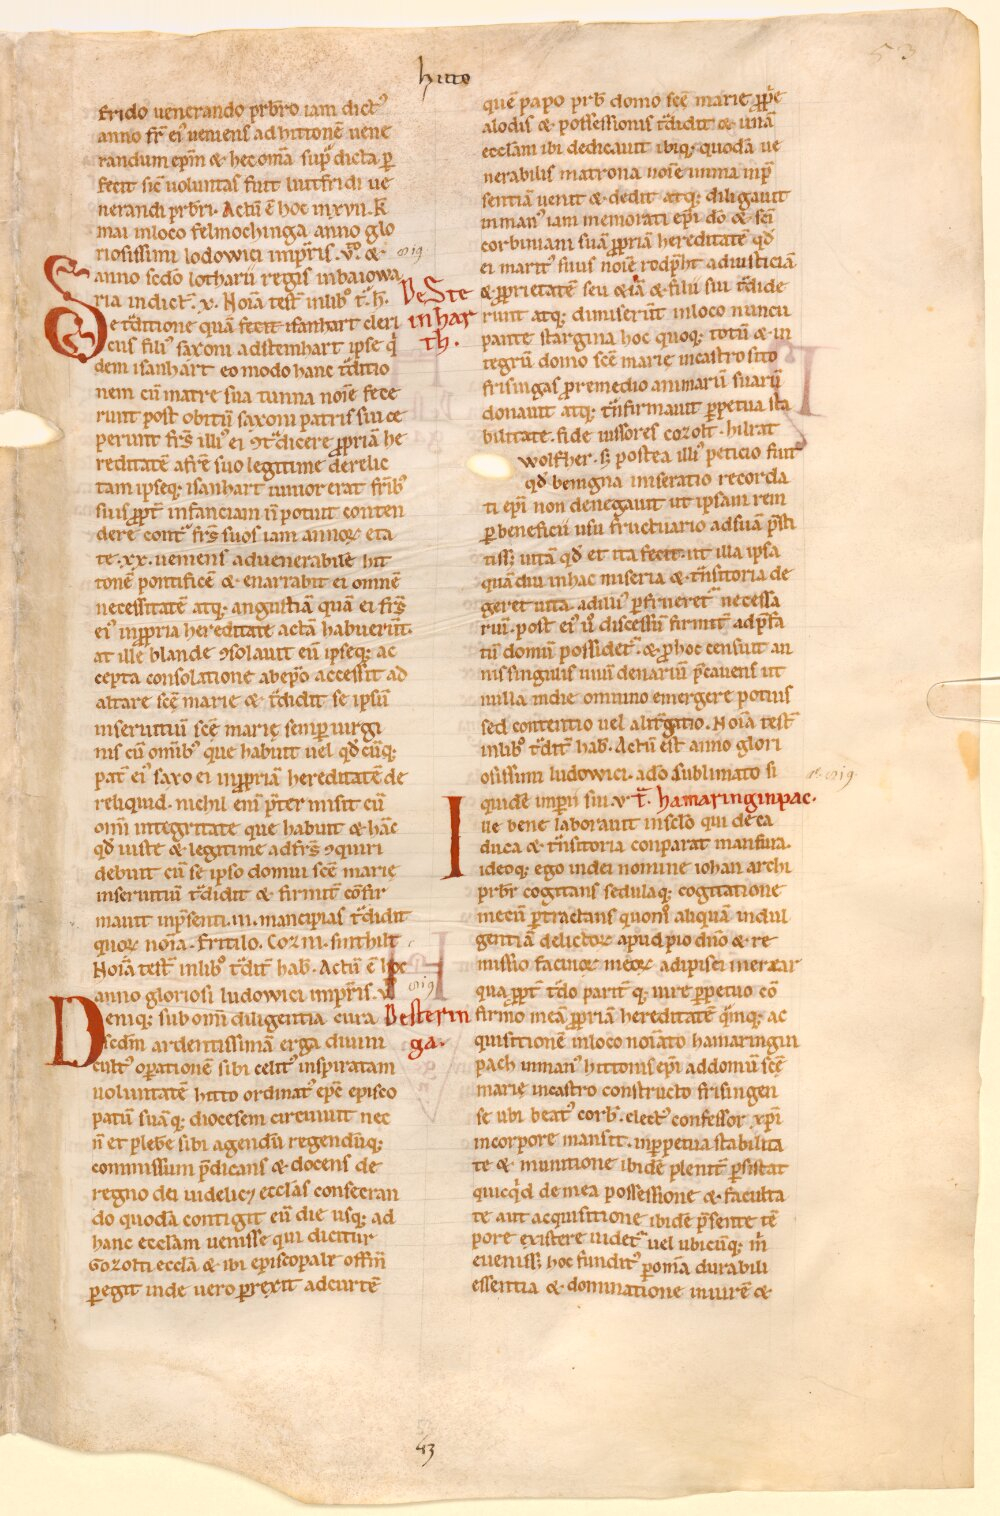 hitto
53
frido uenerando prbro iam dict᷒
anno fr̄ ei᷒ ueniens ad hitionē uene
randum ep̄m & hec om̄a sup̄ dicta ꝑ
fecit sic̄ uoluntas fuit luitfridi ue
nerandi prb̄ri. Actū ē hoc in xvii. k̄
mai in loco felmochinga anno glo
riosissimi lodowici imp̄ris. v̊. &
anno sc̄do lotharii regis in baiowa
ria indict̄. x. Noīa test̄ in lib̄ t̄. h̄.
De Ste
in har
th.
De t̄ditione quā fecit isanhart cleri
cus fili᷒ saxoni ad steinhart ipse q̇
dem isanhart eo modo hanc t̄ditio
nem cū matre sua tunna noīe fece
runt post obitū saxoni patris sui ce
perunt fr̄s illi᷒ ei ꝯt̄dicere ꝓpriā he
reditatē a fr̄e suo legitime derelic
tam ipseq; isanhart iunior erat fr̄ib᷒
suis ꝓpt̄ infanciam n̄ potuit conten
dere cont̄ fr̄s suos iam annoꝝ eta
te .xx. ueniens ad uenerabile hit
tonē pontificē & enarrabit ei omnē
necessitatē atq; angustiā quā ei fr̄s
ei᷒ in ꝓpria hereditate actā habuerūt.
at ille blande ꝯsolauit eū ipseq; ac
cepta consolatione ab ep̄o accessit ad
altare sc̄e marie & t̄didit se ipsū
in seruitiū sc̄e marię semꝑ uirgi
nis cū omīb᷒ que habuit uel qd̄ cūq;
pat̄ ei᷒ saxo ei in ꝓpriā hereditatē de
reliquid. nichil eni p̄ter misit cū
om̄i integritate que habuit & hāc
qd̄ iuste & legitime ad fr̄s ꝯquiri
debuit cū se ipso domui sc̄e marie
in seruitiū t̄didit & firmit̄ cōfir
mauit in p̄senti .iii. mancipias t̄didit
quoꝝ noīa. Fritilo. Cozni. suithilt
Noīa test̄ in lib᷒ t̄dit̄ hab̄. Actū ē hoc
anno gloriosi ludowici imp̄ris. v̊
De sterin
ga.
Deniq; sub om̄i diligentia cura
sc̄dm̄ ardentissimā erga diuin
cult᷒ oꝑationē sibi celit᷒ inspiratam
uoluntatē hitto ordinat᷒ ep̄c episco
patū suāq; diocesem circuiuit nec
n̄ et plebe sibi agendū regendūq;
commissum p̄dicans & docens de
regno dei uidelic& ecclas consecran
do quodā contigit eū die usq; ad
hanc ecclam uenisse qui dicitur
Gozolti ecclā & ibi episcopale offm̄
ꝑegit inde uero prexit ad curtē
quē papo prb̄ domo sc̄e marie ꝓpe
alodis & possessionis t̄didit & unā
ecclam ibi dedicauit ibiq; quodā ue
nerabilis matrona noīe imma in p̄
sentiā uenit & dedit atq; diligauit
in man᷒ iam memorati ep̄i do & sc̄i
corbiniani suā ꝓpriā hereditatē qd̄
ei marit᷒ suus noīe rodp̄ht ad iusticiā
& ꝓprietatē seu & iā & filii sui t̄dide
runt atq; dimiserūt in loco nuncu
pante stargina hoc quoq; totū & in
tegrū domo sc̄e marie in castro sito
frisingas ꝓ remedio animarū suarū
donauit atq; ꝯfirmauit ꝑpetua sta
bilitate. fide iussores cozolt. hiltrat
wolfher. s; postea illi᷒ peticio fuit
qd̄ benigna miseratio recorda
ti ep̄i non denegauit ut ipsam rem
ꝑ beneficii usu fructuario ad suā p̄sti
tiss; uitā qd̄ et ita fecit. ut illa ipsa
quā diu in hac miseria & t̄nsitoria de
geret uita adiui᷒ ꝑfrueret̄ necessa
riū. post ei᷒ ū discessū firmit̄ ad p̄fa
tū domū possidet̄. & ꝓ hoc censuit an
nis singulis unū denariū p̄cauens ut
nulla in die omnino emergere potius
sed contentio uel alt̄gatio. Noīa test̄
in lib᷒ t̄dit̄ hab̄. Actū est anno glori
osissimi ludowici. a do sublimato si
quide imperii sui. v t̄. hamaringin pac.
Iue bene laborauit in sclo qui de ca
duca & t̄nsitoria conparat mansura.
ideoq; ego in dei nomine iohan archi
prbr̄ cogitans sedulaq; cogitatione
mecū ꝑtractans quom̊ aliquā indul
gentiā delictoꝝ apud pio dn̄o & re
missio facinoꝝ meoꝝ adipisci merear
qua ꝓpt̄ t̄do parit̄ q; iure ꝑpetuo cō
firmo meā ꝓpriā hereditatē q̇inq; ac
quisitionē in loco noīato hamaringun
pach in man᷒ hittonis ep̄i ad domū sc̄e
marię in castro constructo frisingen
se ubi beat᷒ corb̄. elect᷒ confessor xp̄i
in corpore mansit. in ꝑpetua stabilita
te & munitione ibidē plenit̄ ꝑsistat
quicq̇d de mea possessione & faculta
te aut acquisitione ibidē p̄sente tē
pore existere uidet̄ uel ubicūq; m̄
eueniss; hoc fundit᷒ ꝑ om̄a durabili
essentia & dominatione in iure &
43